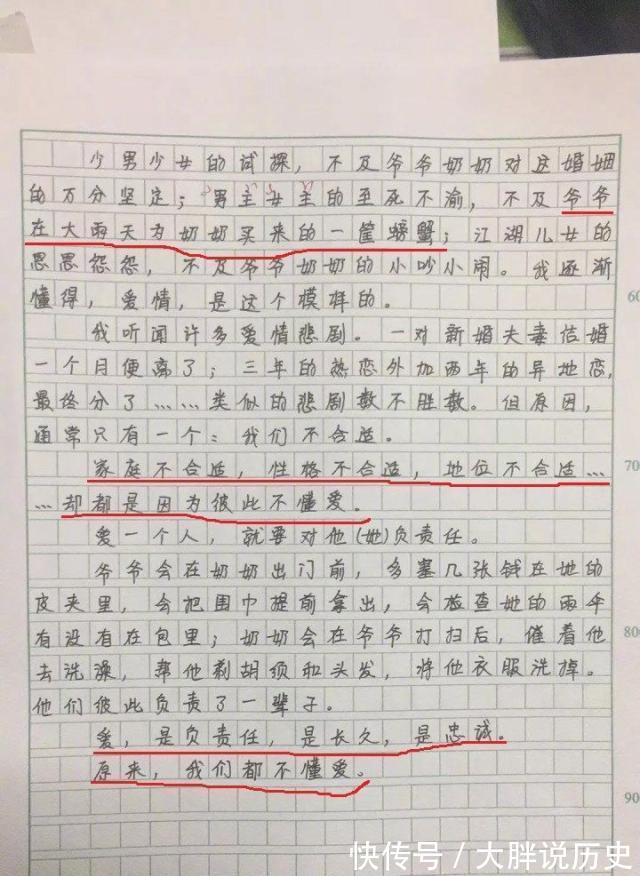 少男少女的试探，不及爷爷奶奶对这婚姻
的万分坚定；男主女主的至死不渝，不及爷爷
在大雨天为奶奶买来的一筐螃蟹；江湖儿女的
恩恩怨怨，不及爷爷奶奶的小吵小闹。我逐渐
懂得，爱情，是这个模样的。
60
我听闻许多爱情悲剧。一对新婚夫妻结婚
一个月便离了；三年的热恋外加两年的异地恋，
最终分了……类似的悲剧数不胜数。但原因，
通常只有一个：我们不合适。
家庭不合适，性格不合适，地位不合适…
70
…却都是因为彼此不懂爱。
爱一个人，就要对他(她)负责任。
爷爷会在奶奶出门前，多塞几张钱在她的
皮夹里，会把围巾提前拿出，会检查她的雨伞
有没有在包里；奶奶会在爷爷打扫后，催着他
80
去洗澡，帮他剃胡须和头发，将他衣服洗掉。
他们彼此负责了一辈子。
爱，是负责任，是长久，是忠诚。
原来，我们都不懂爱。
90
快传号/大胖说历史